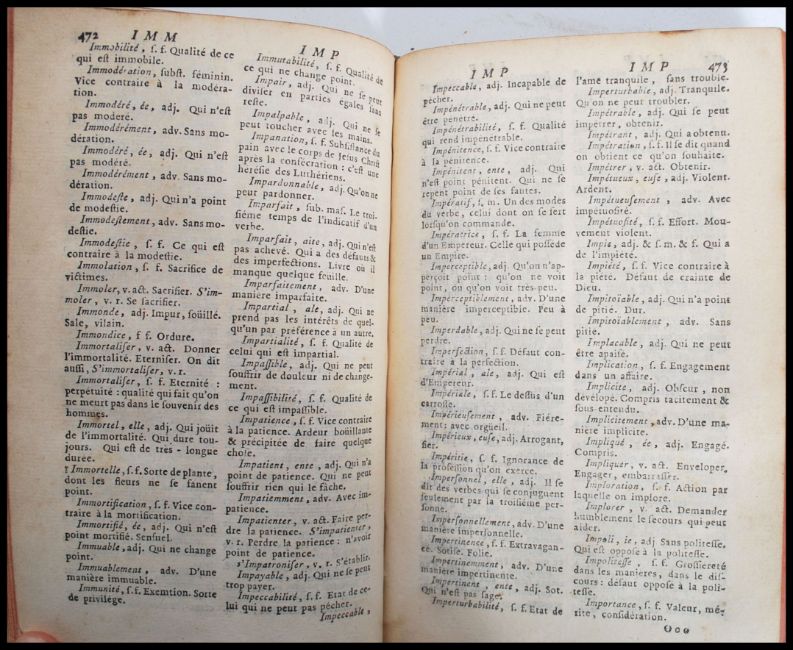 472 IMM
Immobilité, s. f. Qualité de ce
qui est immobile.
Immodération, subst. féminin.
Vice contraire à la modéra-
tion.
Immodéré, ée, adj. Qui n'est
pas modéré.
Immodérément, adv. Sans mo-
dération.
Immodéré, ée, adj. Qui n'est
pas modéré.
Immodérément, adv. Sans mo-
dération.
Immodeste, adj. Qui n'a point
de modestie.
Immodestement, adv. Sans mo-
destie.
Immodestie, s. f. Ce qui est
contraire à la modestie.
Immolation, s. f. Sacrifice de
victimes.
Immoler, v. act. Sacrifier. S'im-
moler, v. r. Se sacrifier.
Immonde, adj. Impur, souillé.
Sale, vilain.
Immondice, f f. Ordure.
Immortaliser, v. act. Donner
l'immortalité. Eterniser. On dit
aussi, S'immortaliser, v.r.
Immortaliser, s. f. Eternité :
perpétuité : qualité qui fait qu'on
ne meurt pas dans le souvenir des
hommes.
Immortel, elle, adj. Qui joüit
de l'immortalité. Qui dure toû-
jours. Qui est de très-longue
durée.
Immortelle, s.f. Sorte de plante,
dont les fleurs ne se fanent
point.
Immortification, s. f. Vice con-
traire à la mortification.
Immortifié, ée, adj. Qui n'est
point mortifié. Sensuel.
Immuable, adj. Qui ne change
point.
Immuablement, adv. D'une
manière immuable.
Immunité, s. f. Exemtion. Sorte
de privilege.
IMP
Immutabilité, s. f. Qualité de
ce qui ne change point.
Impair, adj. Qui ne se peut
diviser en parties égales sans
reste.
Impalpable, adj. Qui ne se
peut toucher avec les mains.
Impanation, s. f. Subsistance du
pain avec le corps de Jesus Christ
après la consécration : c'est une
hérésie des Luthériens.
Impardonnable, adj. Qu'on ne
peut pardonner.
Imparfait, sub. mas. Le troi-
siéme temps de l'indicatif d'un
verbe.
Imparfait, aite, adj. Qui n'est
pas achevé. Qui a des defauts &
des imperfections. Livre où il
manque quelque feuille.
Imparfaitement, adv. D'une
manière imparfaite.
Impartial, ale, adj. Qui ne
prend pas les intérêts de quel-
qu'un par préférence à un autre.
Impartialité, s. f. Qualité de
celui qui est impartial.
Impassible, adj. Qui ne peut
souffrir de douleur ni de change-
ment.
Impassibilité, s. f. Qualité de
ce qui est impassible.
Impatience, s. f. Vice contraire
à la patience. Ardeur boüillante
& précipitée de faire quelque
chose.
Impatient, ente, adj. Qui n'a
point de patience. Qui ne peut
souffrir rien qui le fâche.
Impatiemment, adv. Avec im-
patience.
Impatienter, v. act. Faire per-
dre la patience. S'impatienter,
v. r. Perdre la patience : n'avoir
point de patience.
s'Impatroniser, v. r. S'établir.
Impayable, adj. Qui ne se peut
trop payer.
Impeccabilité, s. f. Etat de ce-
lui qui ne peut pas pécher.
Impeccable,
IMP
Impeccable, adj. Incapable de
pécher.
Impénétrable, adj. Qui ne peut
être pénétré.
Impénétrabilité, s. f. Qualité
qui rend impénétrable.
Impénitence, s. f. Vice contraire
à la pénitence.
Impénitent, ente, adj. Qui
n'est point pénitent. Qui ne se
repent point de ses fautes.
Impératif, s. m. Un des modes
du verbe, celui dont on se sert
lorsqu'on commande.
Impératrice, s. f. La femme
d'un Empereur. Celle qui possede
un Empire.
Imperceptible, adj. Qu'on n'ap-
perçoit point : qu'on ne voit
point, ou qu'on voit très-peu.
Imperceptiblement, adv. D'une
manière imperceptible. Peu à
peu.
Imperdable, adj. Qui ne se peut
perdre.
Imperfection, s.f. Défaut con-
traire à la perfection.
Impérial, ale, adj. Qui est
d'Empereur.
Impériale, s. f. Le dessus d'un
carrosse.
Impérieusement, adv. Fiére-
ment; avec orgüeil.
Impérieux, euse, adj. Arrogant,
fier.
Impéritie, s. f. Ignorance de
la profession qu'on exerce.
Impersonnel, elle, adj. Il se
dit des verbes qui se conjuguent
seulement par la troisiéme per-
sonne.
Impersonnellement, adv. D'une
manière impersonnelle.
Impertinence, s. f. Extravagan-
ce. Sotise. Folie.
Impertinemment, adv. D'une
manière impertinente.
Impertinent, ente, adj. Sot.
Qui n'est pas sage.
Imperturbabilité, s. f. Etat de
IMP 473
l'ame tranquile, sans trouble.
Imperturbable, adj. Tranquile.
Qu'on ne peut troubler.
Impétrable, adj. Qui se peut
impétrer, obtenir.
Impétrant, adj. Qui a obtenu.
Impétration, s. f. Il se dit quand
on obtient ce qu'on souhaite.
Impétrer, v. act. Obtenir.
Impétueux, euse, adj. Violent.
Ardent.
Impétueusement, adv. Avec
impétuosité.
Impétuosité, s. f. Effort. Mou-
vement violent.
Impie, adj. & s. m. & f. Qui a
de l'impieté.
Impiété, s. f. Vice contraire à
la piété. Défaut de crainte de
Dieu.
Impitoïable, adj. Qui n'a point
de pitié. Dur.
Impitoïablement, adv. Sans
pitié.
Implacable, adj. Qui ne peut
être apaisé.
Implication, s. f. Engagement
dans un affaire.
Implicite, adj. Obscur, non
dévelopé. Compris tacitement &
sous-entendu.
Implicitement, adv. D'une ma-
nière implicite.
Impliqué, ée, adj. Engagé.
Compris.
Impliquer, v. act. Enveloper.
Engager, embarrasser.
Imploration, s. f. Action par
laquelle on implore.
Implorer, v. act. Demander
humblement le secours qui peut
aider.
Impoli, ie, adj. Sans politesse.
Qui est opposé à la politesse.
Impolitesse, s. f. Grossiereté
dans les manières, dans le dis-
cours : défaut opposé à la poli-
tesse.
Importance, s. f. Valeur, mé-
rite, considération.
Ooo